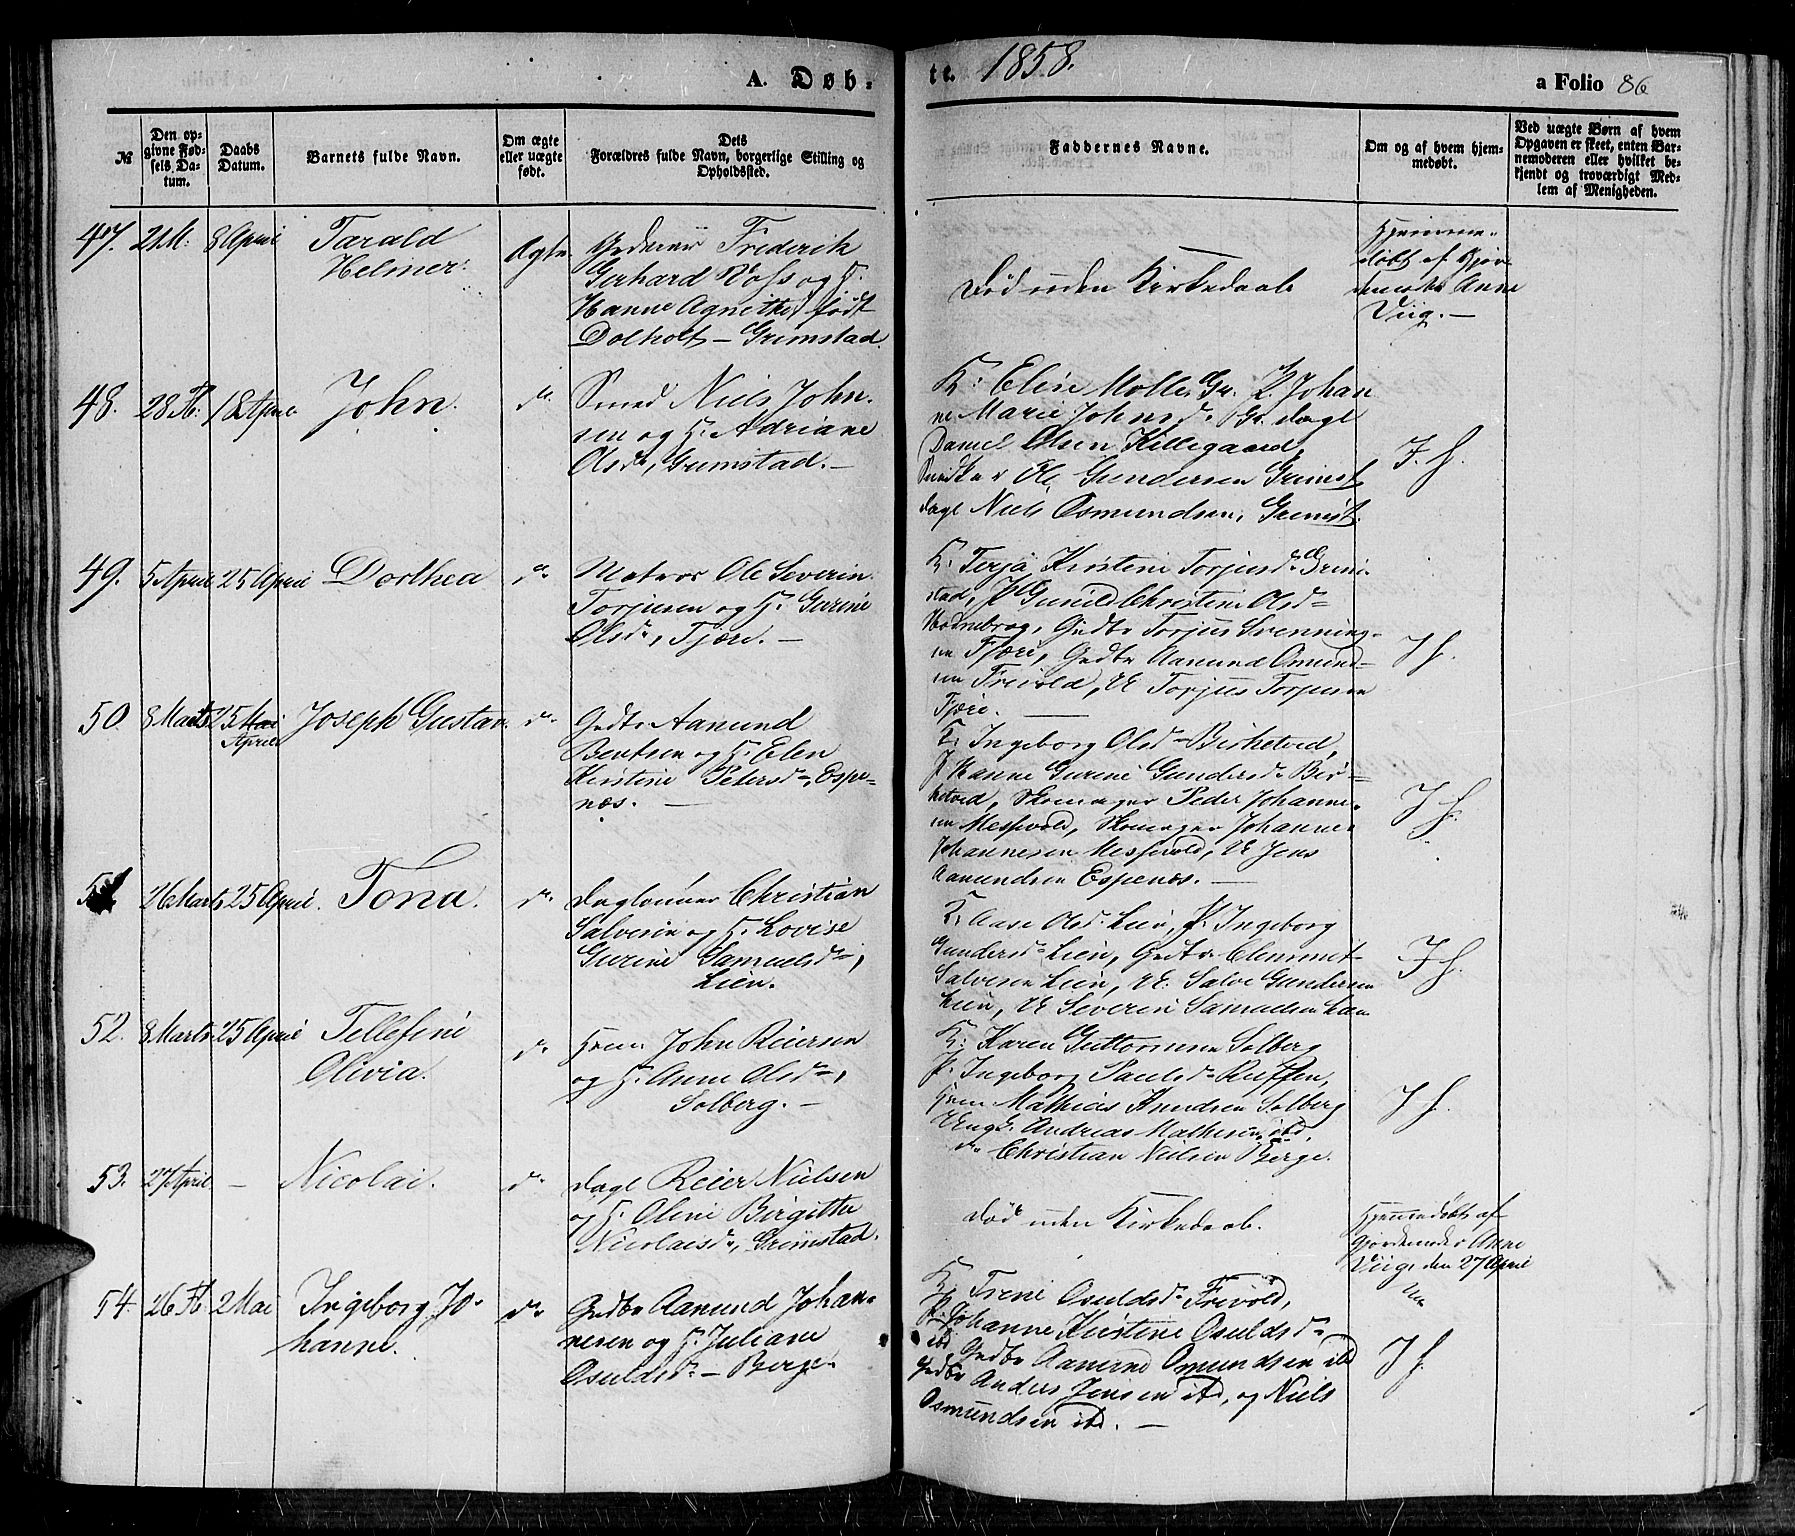 A. Døb-
te. 1858.
a Folio 86
№
Den op-
givne Fød-
sels Da-
tum.
Daabs
Datum.
Barnets fulde Navn.
Om ægte
eller uægte
født.
Dets
Forældres fulde Navn, borgerlige Stilling og
Opholdssted.
Faddernes Navne.
Om og af hvem hjem-
medøbt.
Ved uægte Børn af hvem
Opgaven er skeet, enten Bar-
nemoderen eller hvilket be-
kjendt og troværdigt Med-
lem af Menigheden.
47. 21 M: 8 April Tarald
Helmer.
Ægte
Frederik
Gerhard Voss og H.
Hanne Agnethe, født
Dolholt – Grimstad.
Død uden Kirkedaab
Hjemme-
døbt af Gjor-
demoder Anne
Viig. –
48. 28 Fb: 18 April John. do
Smed Niels John-
sen og H. Adriane
Olsdr, Grimstad. –
K: Elise Molle, Gr. P. Johan
ne Marie Johnsdr Gr. dagl
Daniel Olsen Killegaard,
Snidker Ole Gundersen Grimst
dagl Niels Osmundsen, Grimst.
J. H.
49. 5 April 25 April Dorthea do
Matros Ole Severin
Torjusen og H. Gurine
Olsdr, Fjære. –
K. Terja Kirstine Torjusdr Grim-
stad, P Gunild Christine Olsdr
Gdbr Torjus Svenning-
sen Fjære, Gdbr Aamund Osmund-
sen Frivold, U Torjus Torjusen
Fjære. –
J H.
50. 8 Marts 25 Mai
April
Joseph Gustav. do
Gdbr Aamund
Bentsen og H. Elen
Kirstine Petersdr, Espe-
næs. –
K. Ingeborg Olsdr Birketved,
P Hanne Gurine Gundersdr Bir-
ketved, Skomager Peder Johanne-
sen Messevold, Skomager Johannes
Johannesen Messevold, U Jens
Aamundsen Espenæs. –
J H.
26 Marts 25 April. Tona. do
Daglønner Christian
Salvesen og H. Lovise
Gurine Samuelsdr,
Lien.
K. Aase Olsd. Lien, P. Ingeborg
Gundersdr Lien, Gdbr Clemmet
Salvesen Lien, U. Salve Gundersen
Lien, U Severin Samuelsen
J H.
52. 8 Marts 25 April Tellefine
Olivia.
do
Huusm John Reiersen
og H. Anne Olsdr,
Solberg. –
K: Karen Guttormsen Solberg
P. Ingeborg Paulsdr
Huusm Mathias Knudsen Solberg
Ungk. Andreas Mathisen ibd,
do Christian Nielsen Berge.
J H.
53. 27 April – Nicolai. do
Dagl Reier Nielsen
og H. Oline Birgitte
Nicolaisdr, Grimstad.
Død uden Kirkedaab.
Hjemmedøbt af
Gjordemoder Anne
Viig, den 27 April
54. 26 Fb 2 Mai Ingeborg Jo-
hanne.
do
Gdbr Aamund Johan-
nesen og H. Juliane
Osuldsdr – Berge.
K. Trine Osuldsdr Frivold,
P. Johanne Kirstine Osuldsdr
ibd Gdbr Osmundsen ibd
Gdbr Anders Jensen ibd, og Niels
Osmundsen ibd. –
J H.